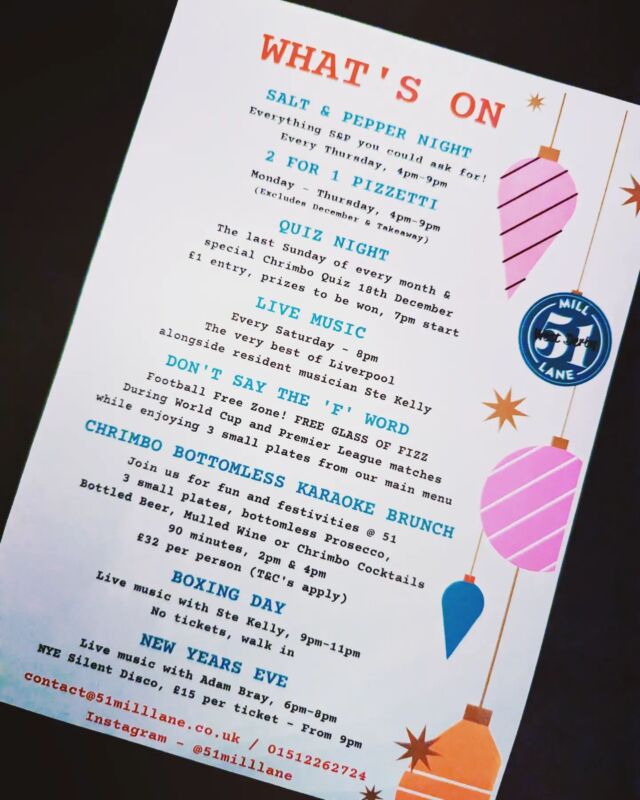 WHAT'S ON
SALT & PEPPER NIGHT
Everything S&P you could ask for!
Every Thursday, 4pm-9pm
2 FOR 1 PIZZETTI
Monday - Thursday, 4pm-9pm
(Excludes December & Takeaway)
QUIZ NIGHT
The last Sunday of every month &
special Chrimbo Quiz 18th December
£1 entry, prizes to be won, 7pm start
LIVE MUSIC
Every Saturday - 8pm
The very best of Liverpool
alongside resident musician Ste Kelly
DON'T SAY THE 'F' WORD
Football Free Zone! FREE GLASS OF FIZZ
During World Cup and Premier League matches
while enjoying 3 small plates from our main menu
CHRIMBO BOTTOMLESS KARAOKE BRUNCH
Join us for fun and festivities @ 51
3 small plates, bottomless Prosecco,
Bottled Beer, Mulled Wine or Chrimbo Cocktails
90 minutes, 2pm & 4pm
£32 per person (T&C's apply)
BOXING DAY
Live music with Ste Kelly, 9pm-11pm
No tickets, walk in
NEW YEARS EVE
Live music with Adam Bray, 6pm-8pm
NYE Silent Disco, £15 per ticket - From 9pm
contact@51milllane.co.uk / 01512262724
Instagram - @51milllane
MILL
51
West Derby
LANE